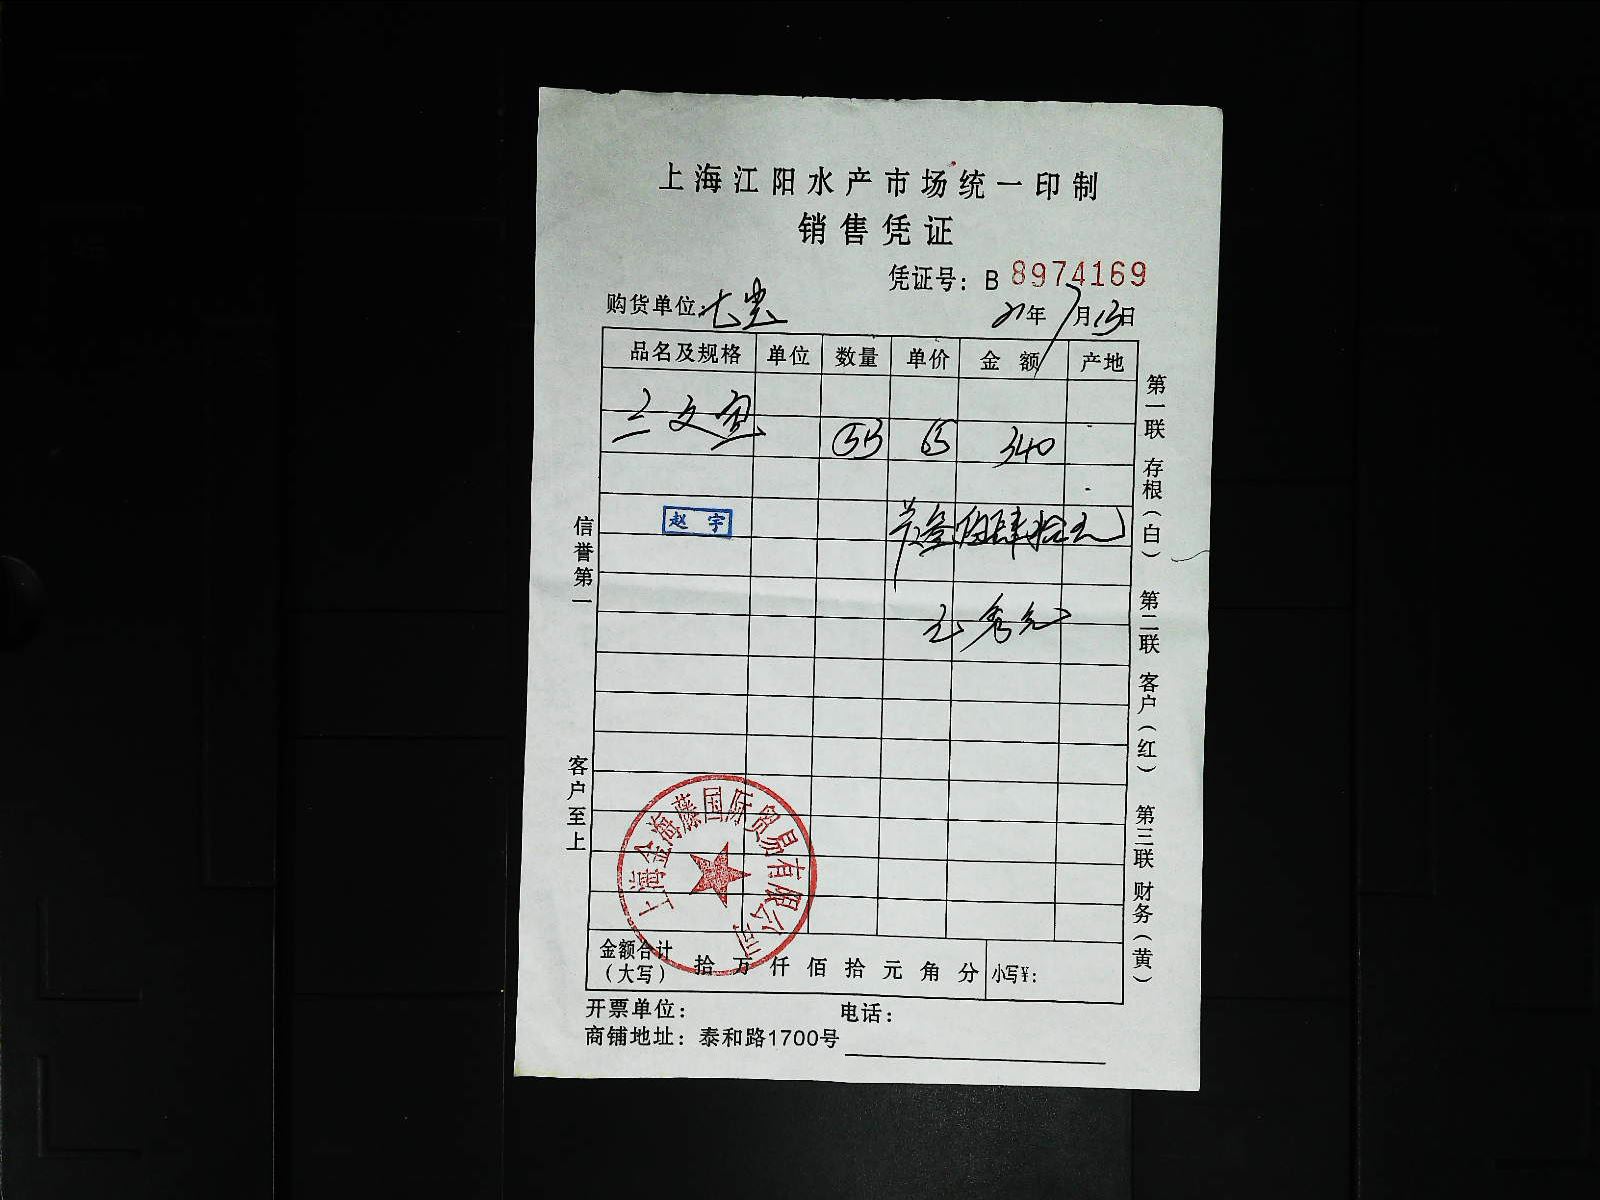 上海江阳水产市场统一印制
销售凭证
凭证号：B 8974169
购货单位： 21年7月13日
品名及规格 单位 数量 单价 金额 产地
三文鱼 65 340
赵宇 共叁佰肆拾元
信誉第一
客户至上
第一联 存根（白） 第二联 客户（红） 第三联 财务（黄）
上海金海藤国际贸易有限公司
金额合计（大写） 拾 万 仟 佰 拾 元 角 分 小写¥：
开票单位： 电话：
商铺地址：泰和路1700号